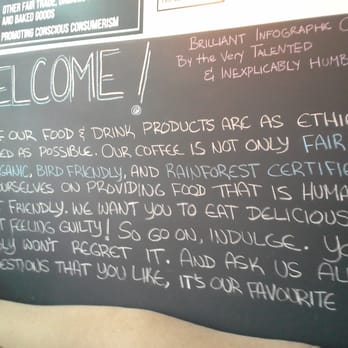 OTHER FAIR TRADE,
AND BAKED GOODS
PROMOTING CONSCIOUS CONSUMERISM
BRILLIANT INFOGRAPHIC
BY THE VERY TALENTED
& INEXPLICABLY HUMB
ELCOME!
OUR FOOD & DRINK PRODUCTS ARE AS ETHIC
ED AS POSSIBLE. OUR COFFEE IS NOT ONLY FAIR
GANIC, BIRD FRIENDLY, AND RAINFOREST CERTIFIE
URSELVES ON PROVIDING FOOD THAT IS HUMA
T FRIENDLY. WE WANT YOU TO EAT DELICIOUS
T FEELING GUILTY! SO GO ON, INDULGE. YO
LY WON'T REGRET IT. AND ASK US AL
ESTIONS THAT YOU LIKE, IT'S OUR FAVOURITE